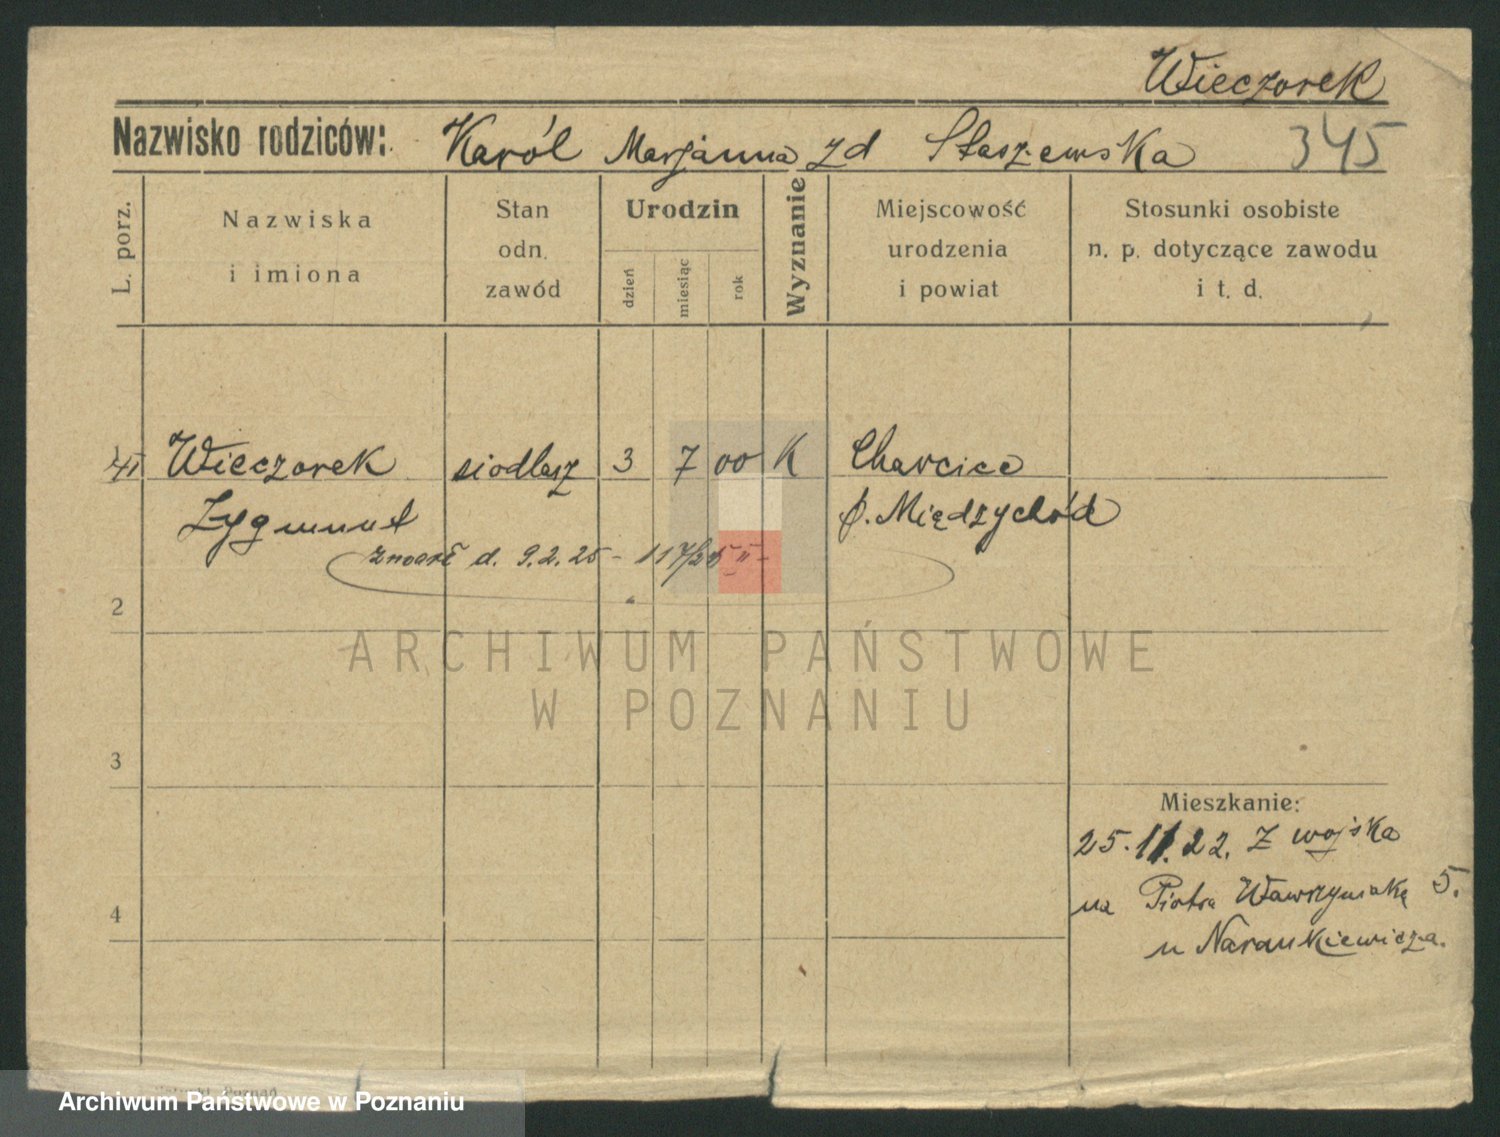 Wieczorek
Nazwisko rodziców: Karól Marjanna zd Staszewska 345
L. porz.
Nazwiska i imiona
Stan odn. zawód
Urodzin
dzień
miesiąc
rok
Wyznanie
Miejscowość urodzenia i powiat
Stosunki osobiste n. p. dotyczące zawodu i t. d.
Wieczorek siodlasz 3 7 00 K Charcice
Zygmunt p. Międzychód
zmarł d. 9.2.25 -
2
3
4
Mieszkanie:
25.11.22. Z wojska
na Piotra Wawrzyniaka 5.
u Narankiewicza.
ARCHIWUM PAŃSTWOWE
W POZNANIU
Poznań
Archiwum Państwowe w Poznaniu